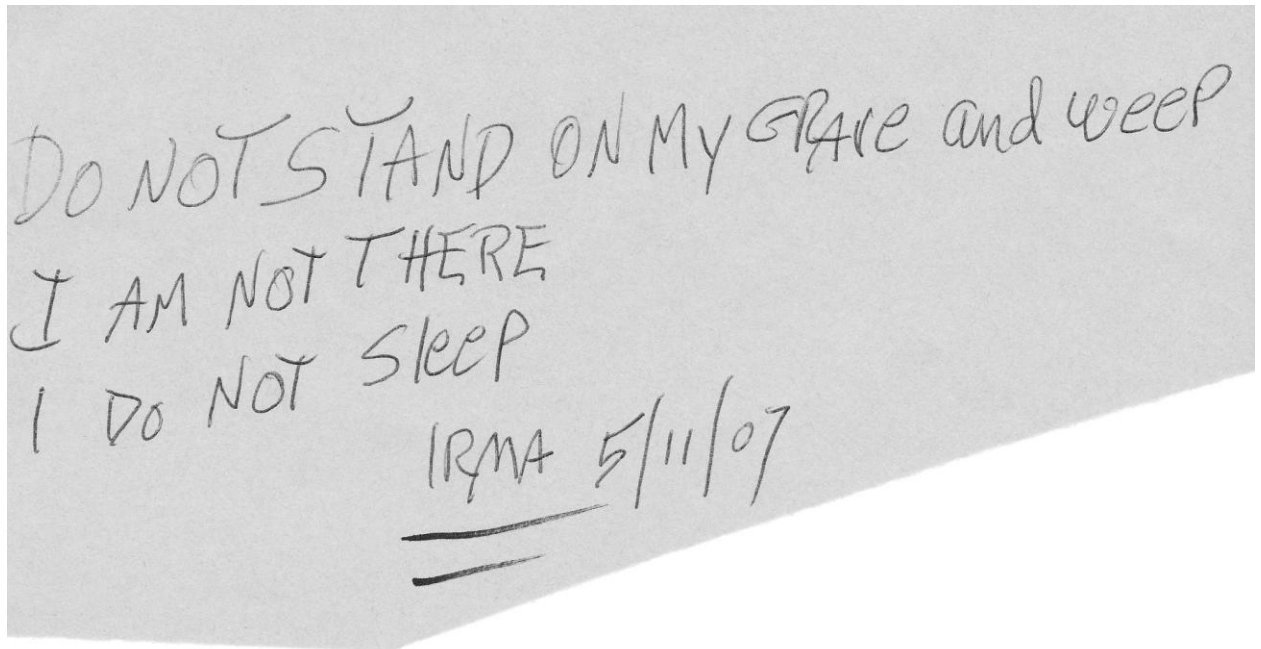 DO NOT STAND ON MY GRAve and weep
I AM NOT THERE
I DO NOT Sleep
IRMA 5/11/07